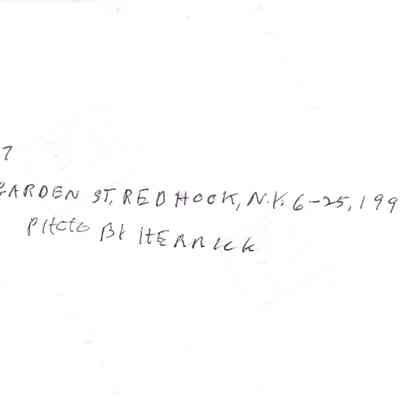 7
GARDEN ST, RED HOOK, N.Y. 6-25, 199
PHOTO BY HERRICK